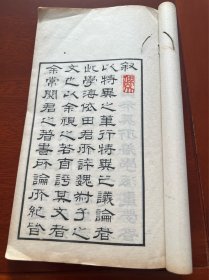 叙
以特異之筆行特異之議論者
此學海依田君所評魏叔子之
文也以余視之若自言某文者
余常閱君之著書所論所紀皆